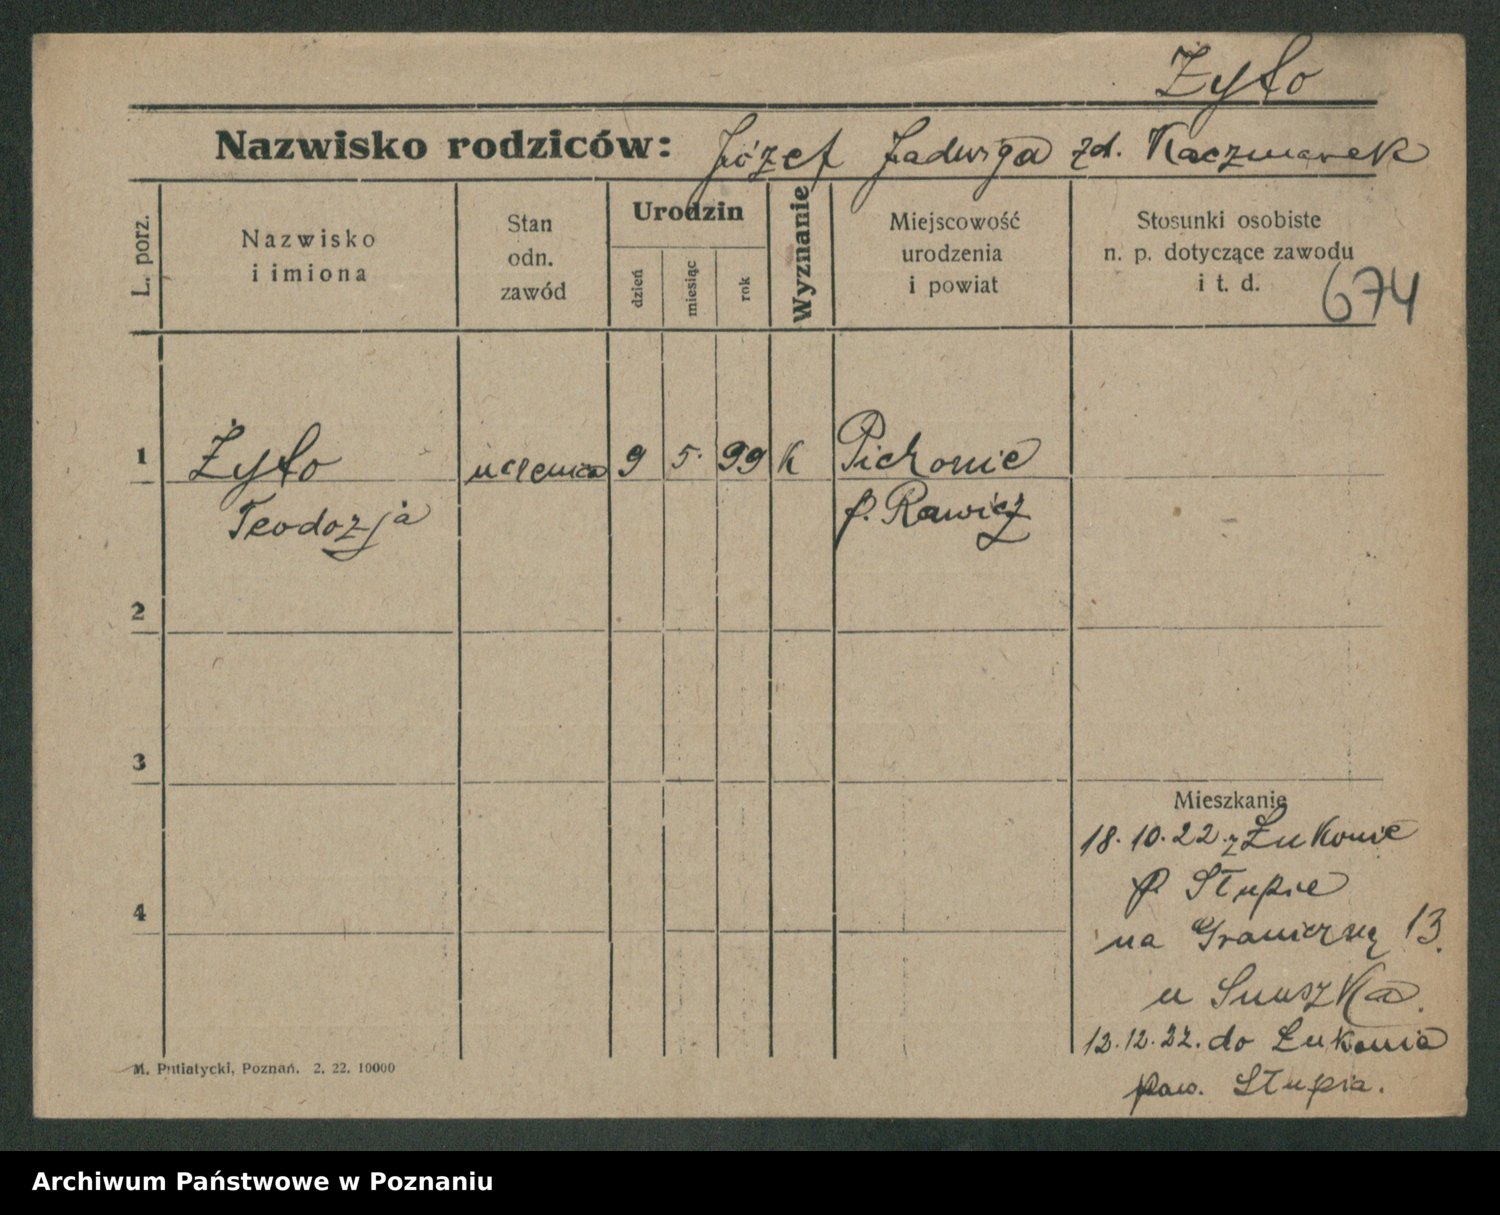 Żyło
Nazwisko rodziców: Józef Jadwiga zd. Kaczmarek
L. porz.
Nazwisko
i imiona
Stan
odn.
zawód
Urodzin
dzień
miesiąc
rok
Wyznanie
Miejscowość
urodzenia
i powiat
Stosunki osobiste
n. p. dotyczące zawodu
i t. d.
674
1 Żyło uczenica 9 5. 99 K Pichonie
Teodozja p. Rawicz
2
3
4
Mieszkanie
18. 10. 22. z Łukonie
p Słupie
na Graniczną 13.
u
12. 12. 22. do Łukonia
pow. Słupia.
M. Putiatycki, Poznań. 2. 22. 10000
Archiwum Państwowe w Poznaniu